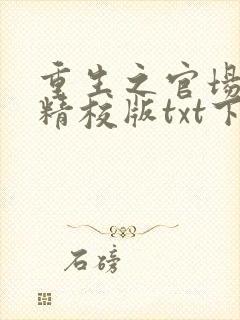 重生之官场
精校版txt下
石磅